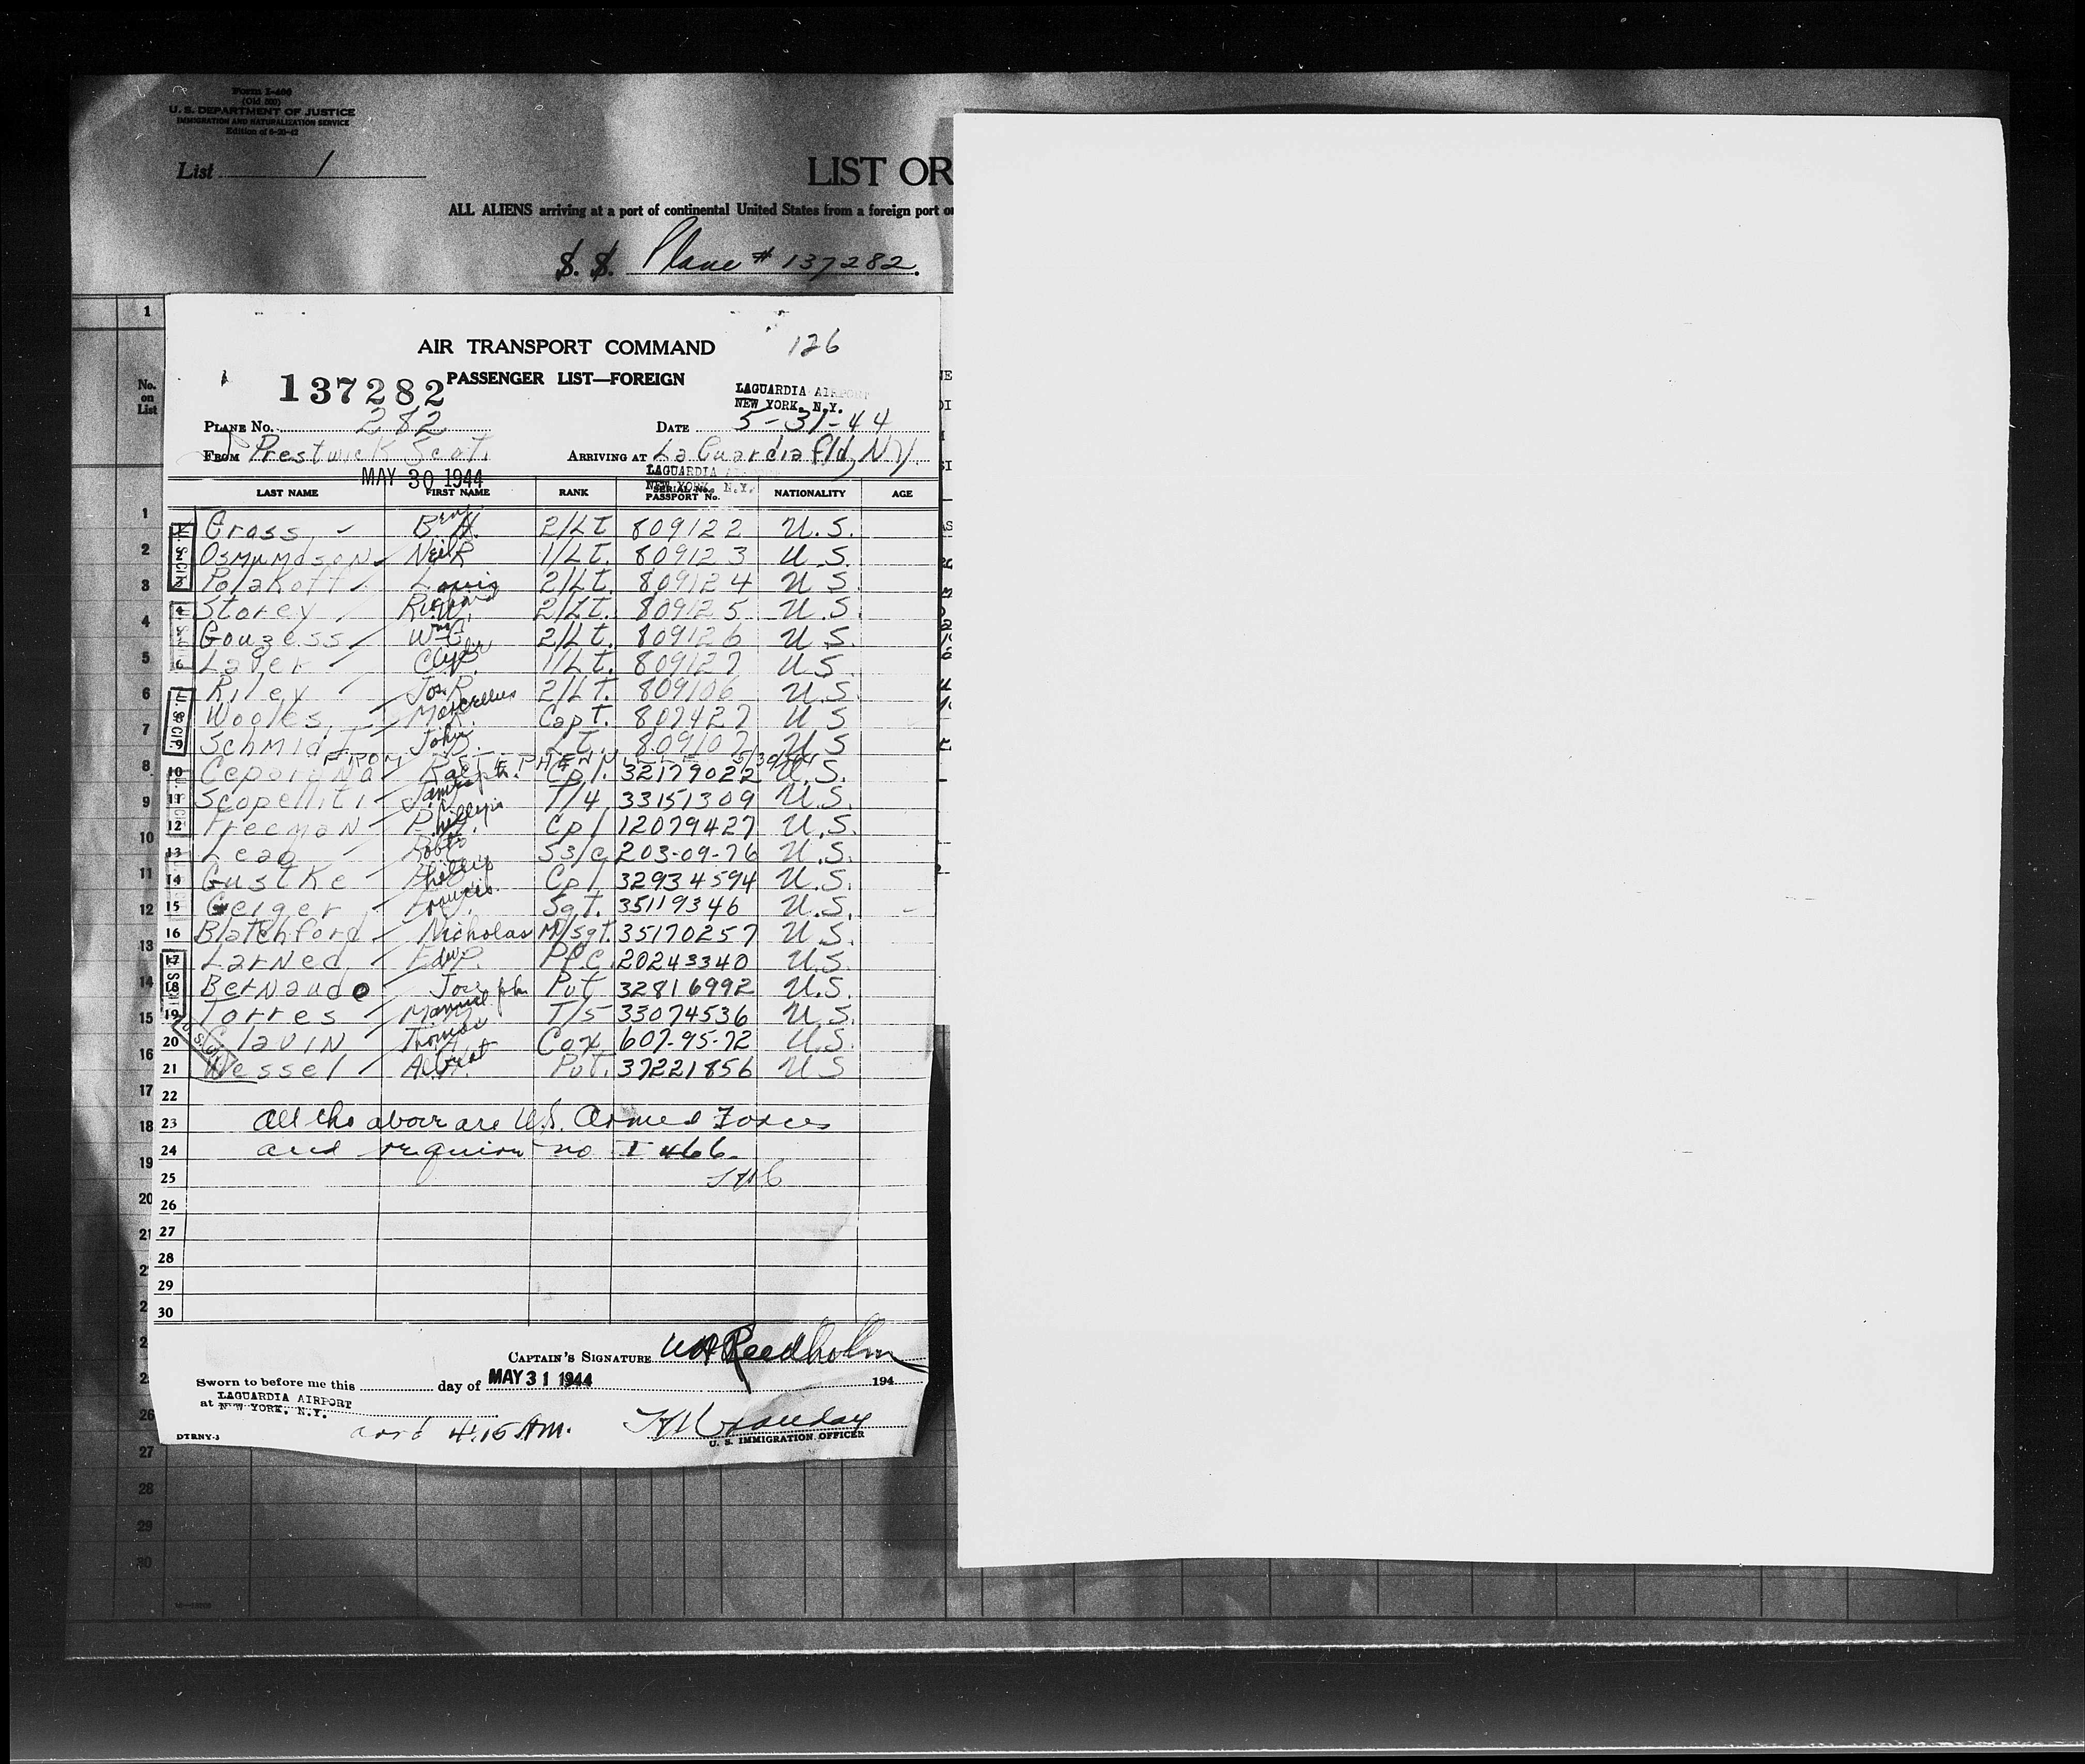 Form I-466
(Old 500)
U. S. DEPARTMENT OF JUSTICE
IMMIGRATION AND NATURALIZATION SERVICE
Edition of 6-20-42
List 1
LIST OR
ALL ALIENS arriving at a port of continental United States from a foreign port or
S. S. Plane # 137282.
AIR TRANSPORT COMMAND 126
137282 PASSENGER LIST—FOREIGN
LAGUARDIA AIRPORT
NEW YORK, N.Y.
PLANE NO. 282 DATE 5-31-44
FROM Prestwick Scot. ARRIVING AT La Guardia Fld, NY.
MAY 30 1944 LAGUARDIA
NEW YORK, N.Y.
LAST NAME FIRST NAME RANK SERIAL No. PASSPORT No. NATIONALITY AGE
Gross Ben H. 2/Lt 809122 U.S.
Osmundson Neil R 1/Lt. 809123 U.S.
Polakoff Louis 2/Lt. 809124 U S
Storey Richard W. 2/Lt. 809125 U.S.
Gouzess Wm G. 2/Lt. 809126 U S.
Laver Clyde 1/Lt. 809127 U S.
Riley Jos. R. 2/Lt. 809106 U.S.
Wooles Marcellus Capt. 807427 U S
Schmidt John Lt. 809107 U S
FROM STEPHENVILLE 5/30/44
10 Ralph. Cpl. 32179022 U.S.
11 Scopelliti James T/4 33151309 U.S.
12 Freeman Phillip Cpl 12079427 U.S.
13 Leab Robt S3/c 203-09-76 U.S.
14 Gustke Phillip Cpl 32934594 U.S.
15 Geiger Francis Sgt. 35119346 U.S.
16 Blatchford Nicholas M/Sgt. 35170257 U S.
17 Larned Edw P. Pfc. 20243340 U.S.
18 Bernaudo Joseph Pvt 32816992 U.S.
19 Torres Manuel T/5 33074536 U S.
20 Glavin Thomas Cox 607-95-72 U.S.
21 Wessel Albert Pvt. 37221856 U S
22
23 All the above are U.S. Armed Forces
24 and require no I 466.
25
26
27
28
29
30
CAPTAIN'S SIGNATURE Reedholm
Sworn to before me this day of MAY 31 1944 194
at LAGUARDIA AIRPORT
NEW YORK, N.Y.
arrd 4:15 AM.
DTRNY-3 U. S. IMMIGRATION OFFICER